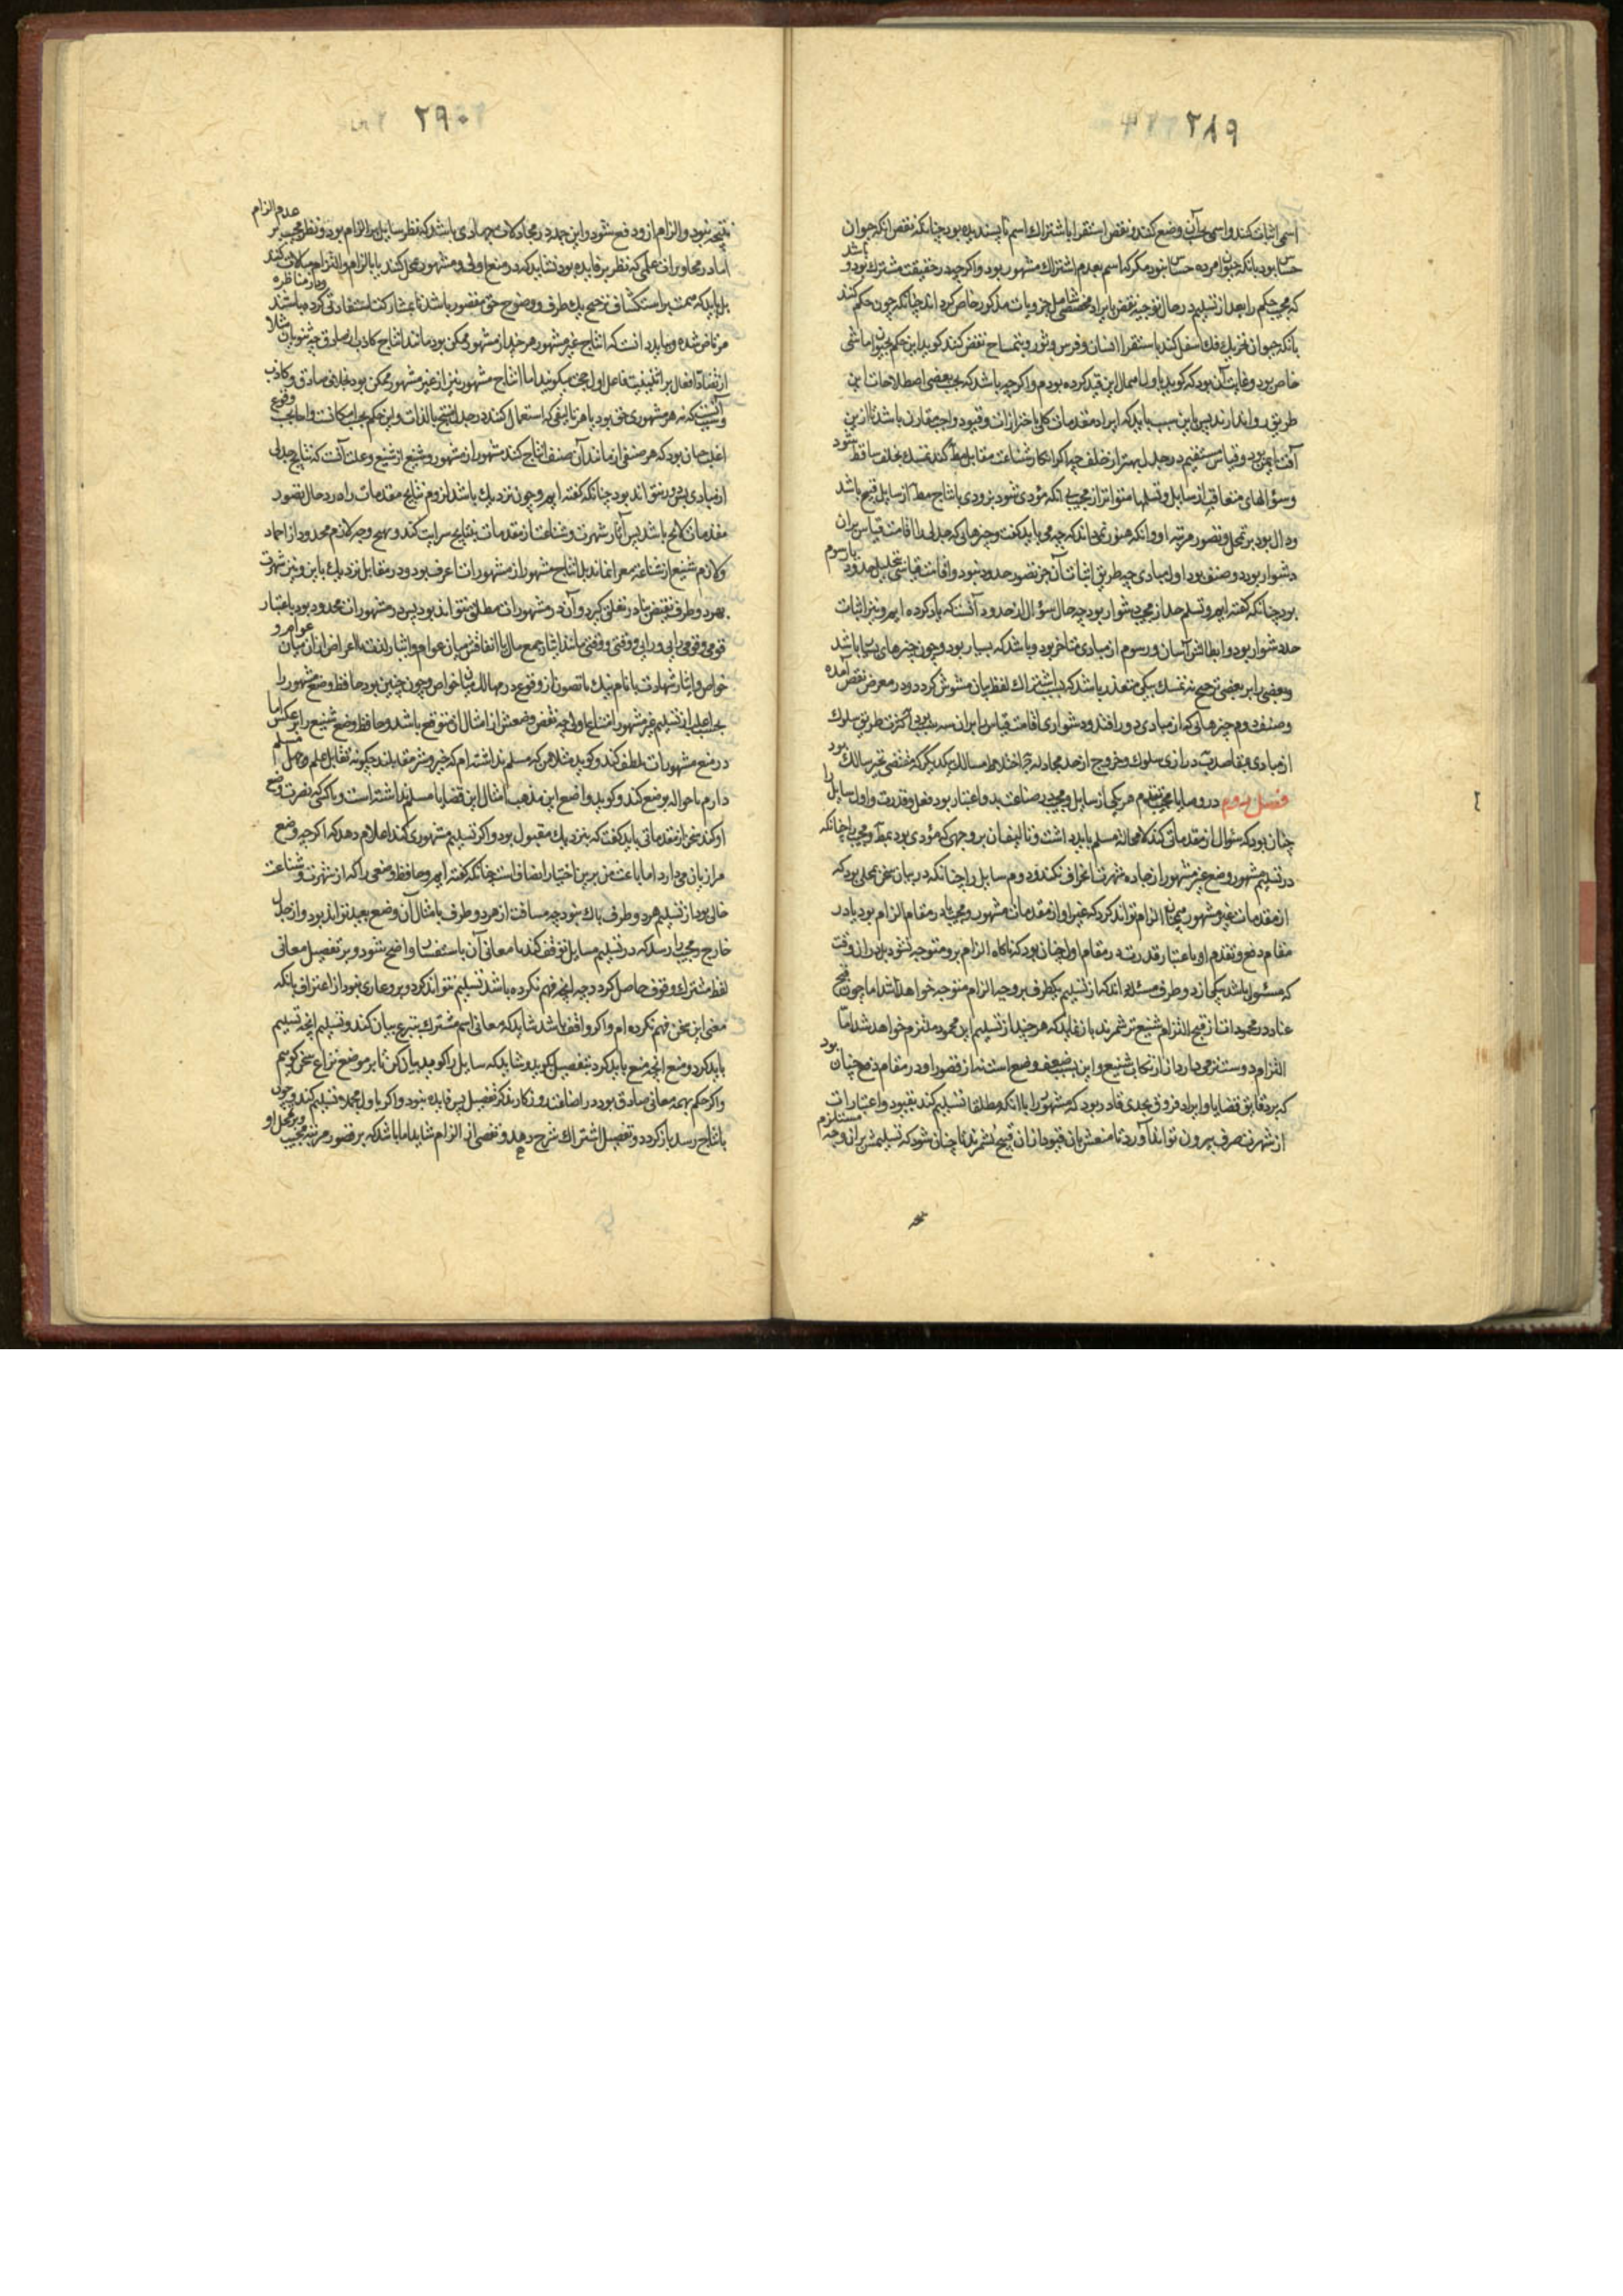 ۲۸۹
اسمی اثبات کند و اسمی بجای آن وضع کند و نقض استقرا باشتراک اسم ناپسندیده بود چنانکه نقض آنکه حیوان
حساس بود بآنکه حیوان مرده حساس نبود مگر که اسم بعدم اشتراک مشهور بود و اگرچه در حقیقت مشترک بود و باشد
که مجیب حکم را بعد از تسلیم در حال توجیه نقض بایراد مخصصی شامل جزویات مذکور خاص کرداند چنانکه چون حکم کنند
بآنکه حیوان تحریک فک اسفل کند باستقرا انسان و فرس و ثور و بتمساح نقض کند گوید این حکم بحیوان ماشی
خاص بود و غایت آن بود که گوید باول اهمال این قید کرده بودم و اگرچه باشد که بحسب بعضی اصطلاحات این
طریق روا ندارند پس باین سبب باید که ایراد مقدمات کلی باحترازات و قیود واجب مقارن باشد تا از این
آفت ایمن بود و قیاس مستقیم در جدل بهتر از خلف چه اگر انکار شناعت مقابل مط کند تمسک بخلف ساقط شود
و سؤالهای متعاقب از سایل و تسلیمها متواتر از مجیب بی آنکه مؤدی شود بزودی بانتاج مط از سایل قبیح باشد
و دال بود بر تمحل و قصور مرتبه او و آنکه هنوز نمی‌داند که چه می باید گفت و چیزهائی که جدلی را اقامت قیاس بر آن
دشوار بود دو صنف بود اول مبادی چه طریق اثبات آن جز تصور حدود نبود و اقامت قیاسی تحلیل حدود یا رسوم
بود چنانکه گفته ایم و تسلم حد از مجیب دشوار بود چه حال سؤال از حدود آنست که یاد کرده ایم و نیز اثبات
حد دشوار بود و ابطالش آسان و رسوم از مبادی متأخر بود و باشد که بسیار بود و چون چیزهای بسیار باشد
و بعضی را بر بعضی ترجیح نه تمسک بیکی متعذر باشد که بسبب اشتراک لفظ بیان مشوش گردد و در معرض نقض آمده
و صنف دوم چیزهائی که از مبادی دور افتد و دشواری اقامت قیاس برآن سه سبب بود کثرت طریق سلوک
از مبادی بمقاصد و درازی سلوک و خروج از حد مجادله و اختلاط مسالک بیکدیگر که مقتضی تحیر سالک بود
فصل دوم در وصایا مجیب هر یکی از سایل و مجیب در صناعت بدو اعتبار بود فعل و قدرت و اول سایل را
چنان بود که سؤال از مقدماتی کند که لامحاله مسلم باید داشت و تألیف آن بر وجهی که مؤدی بود بمط و مجیب را چنانکه
در تسلیم مشهور و منع غیر مشهور از جاده شهرت انحراف نکند و دوم سایل را چنانکه در بیان سخن بمحلی بود که
از مقدمات غیر مشهور الزام تواند کرد که غیر او از مقدمات مشهور و مجیب را در مقام الزام بود یا در
مقام دفع و تقدم او باعتبار قدرت در مقام اول چنان بود که ناگاه الزام برو متوجه نشود بل از آن وقت
که مسئول باشد یکی از دو طرف مسئله داند که از تسلیم یک طرف بر وجه الزام متوجه خواهد شد اما چون قبح
عناد در محمودات از قبح التزام شنیع تر شمرند باز نماید که هرچند از تسلیم این محمود ملتزم خواهد شد اما
التزام دوست تر می‌دارد از ارتکاب شنیع و این بسبب ضعف وضع است نه از قصور او در مقام دفع چنان بود
که بر دقایق قضایا و ایراد فروق بحدی قادر بود که مشهور را با آنکه مطلقا تسلیم کند بقیود و اعتبارات
از شهرت صرف بیرون تواند آورد تا منعش بآن قیود از آن قبیح نشمرند تا چنان شود که تسلیمش بر آن وجه مستلزم
۲۹۰
نتیجه نبود و الزام از و دفع شود و این جمله در محاورات جهادی باشد که نظر سایل بر الزام بود و نظر مجیب بر عدم الزام
اما در محاورات علمی که نظر بر فایده بود نشاید که در منع اولی و مشهور تمحل کند یا بالزام و التزام مبالات کند
بل باید که همت بر استکشاف ترجیح یک طرف و وضوح حق مقصور باشد تا بمشارکت استفادتی کرده باشند و در مناظره
مرتاض شده و بباید دانست که انتاج غیر مشهور هرچند از مشهور ممکن بود مانند انتاج کاذب از صادق چه ثنویان مثلا
از تضاد افعال بر اثنینیت فاعل اول حجت میگویند اما انتاج مشهور نیز از غیر مشهور ممکن بود بخلاف صادق و کاذب
و سبب آنست که نه هر مشهوری حق بود یا هر تألیفی که استعمال کنند در جدل منتج بالذات و این حکم بحسب امکانست و اما بحسب وقوع
اغلب چنان بود که هر صنفی از مانند آن صنف انتاج کند مشهور از مشهور و شنیع از شنیع و علت آنست که نتایج جدلی
از مبادی بس دور نتواند بود چنانکه گفته ایم و چون نزدیک باشد لزوم نتایج مقدمات را در حال تصور
مقدمات لایح باشد پس آثار شهرت و شناعت از مقدمات بنتایج سرایت کند و بهیچ وجه لازم محدود از احماد
و لازم شنیع از شناعت معرا نماند بل انتاج مشهور از مشهورات اعرف بود و در مقابل نزدیک باین و نیز شهرت
بهر دو طرف نقیض نادر تعلق گیرد و آن در مشهورات مطلق نتواند بود پس در مشهورات محدود بود باعتبار
قومی و قومی یا رایی و رایی و وقتی و وقتی مانند ایثار جمع مال یا انفاقش میان عوام و ایثار لذت یا اعراض از آن میان عوام و
خواص و ایثار شهادت با نام نیک یا تصون از وقوع در مهالک میان خواص و چون چنین بود حافظ وضع مشهور را
بحسب اغلب از تسلیم غیر مشهور امتناع اولی چه نقض وضعش از امثال آن متوقع باشد و حافظ وضع شنیع را بر عکس اما
در منع مشهورات تلطف کند و گوید مثلا من که مسلم نداشته ام که خیر و شر متقابلند چگونه تقابل علم و جهل مسلم
دارم یا حواله بوضع کند و گوید واضع این مذهب امثال این قضایا مسلم نداشته است و با کسی که نصرت وضع
او کند سخن از مقدماتی باید گفت که بنزدیک مقبول بود و اگر تسلیم مشهوری کند اعلام دهد که اگرچه وضع
مرا زیان می‌دارد اما باعث من برین اختیار انصافست چنانکه گفته ایم و حافظ وضعی را که از شهرت و شناعت
خالی بود از تسلیم هر دو طرف باک نبود چه مسافت از هر دو طرف بامثال آن وضع بعید تواند بود و از جدل
خارج و مجیب را رسد که در تسلیم مسایل توقف کند تا معانی آن باستفسار واضح شود و بر تفصیل معانی
لفظ مشترک وقوف حاصل کرد و چه آنچه فهم نکرده باشد تسلیم نتواند کرد و برو عاری نبود از اعتراف بآنکه
معنی این سخن فهم نکرده ام و اگر واقف باشد شاید که معانی اسم مشترک بتبرع بیان کند و تسلیم آنچه تسلیم
باید کرد و منع آنچه منع باید کرد بتفصیل بگوید و شاید که سایل را گوید بیان کن تا بر موضع نزاع سخن گویم
و اگر حکم بهمه معانی صادق بود در اضاعت روزگار بذکر تفصیل پس فایده نبود و اگر باول مجمله تسلیم کند و چون
بانتاج رسد باز گردد و تفصیل اشتراک شرح دهد و تفصی از الزام شاید اما باشد که بر قصور مرتبه مجیب و بر تمحل او